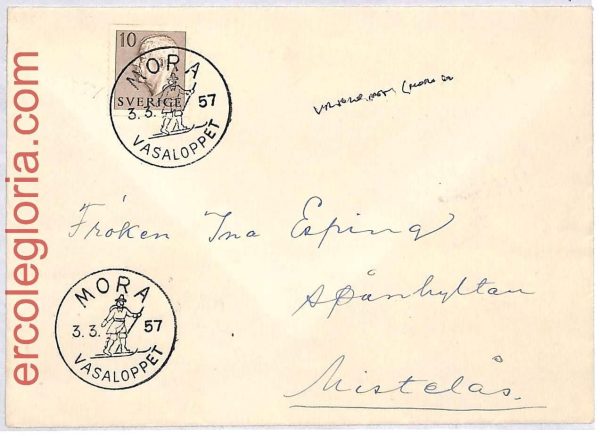 10
SVERIGE
MORA
3.3. 57
VASALOPPET
Fröken Ina Esping
Spånhyltan
Mistelås.
MORA
3.3. 57
VASALOPPET
ercolegloria.com